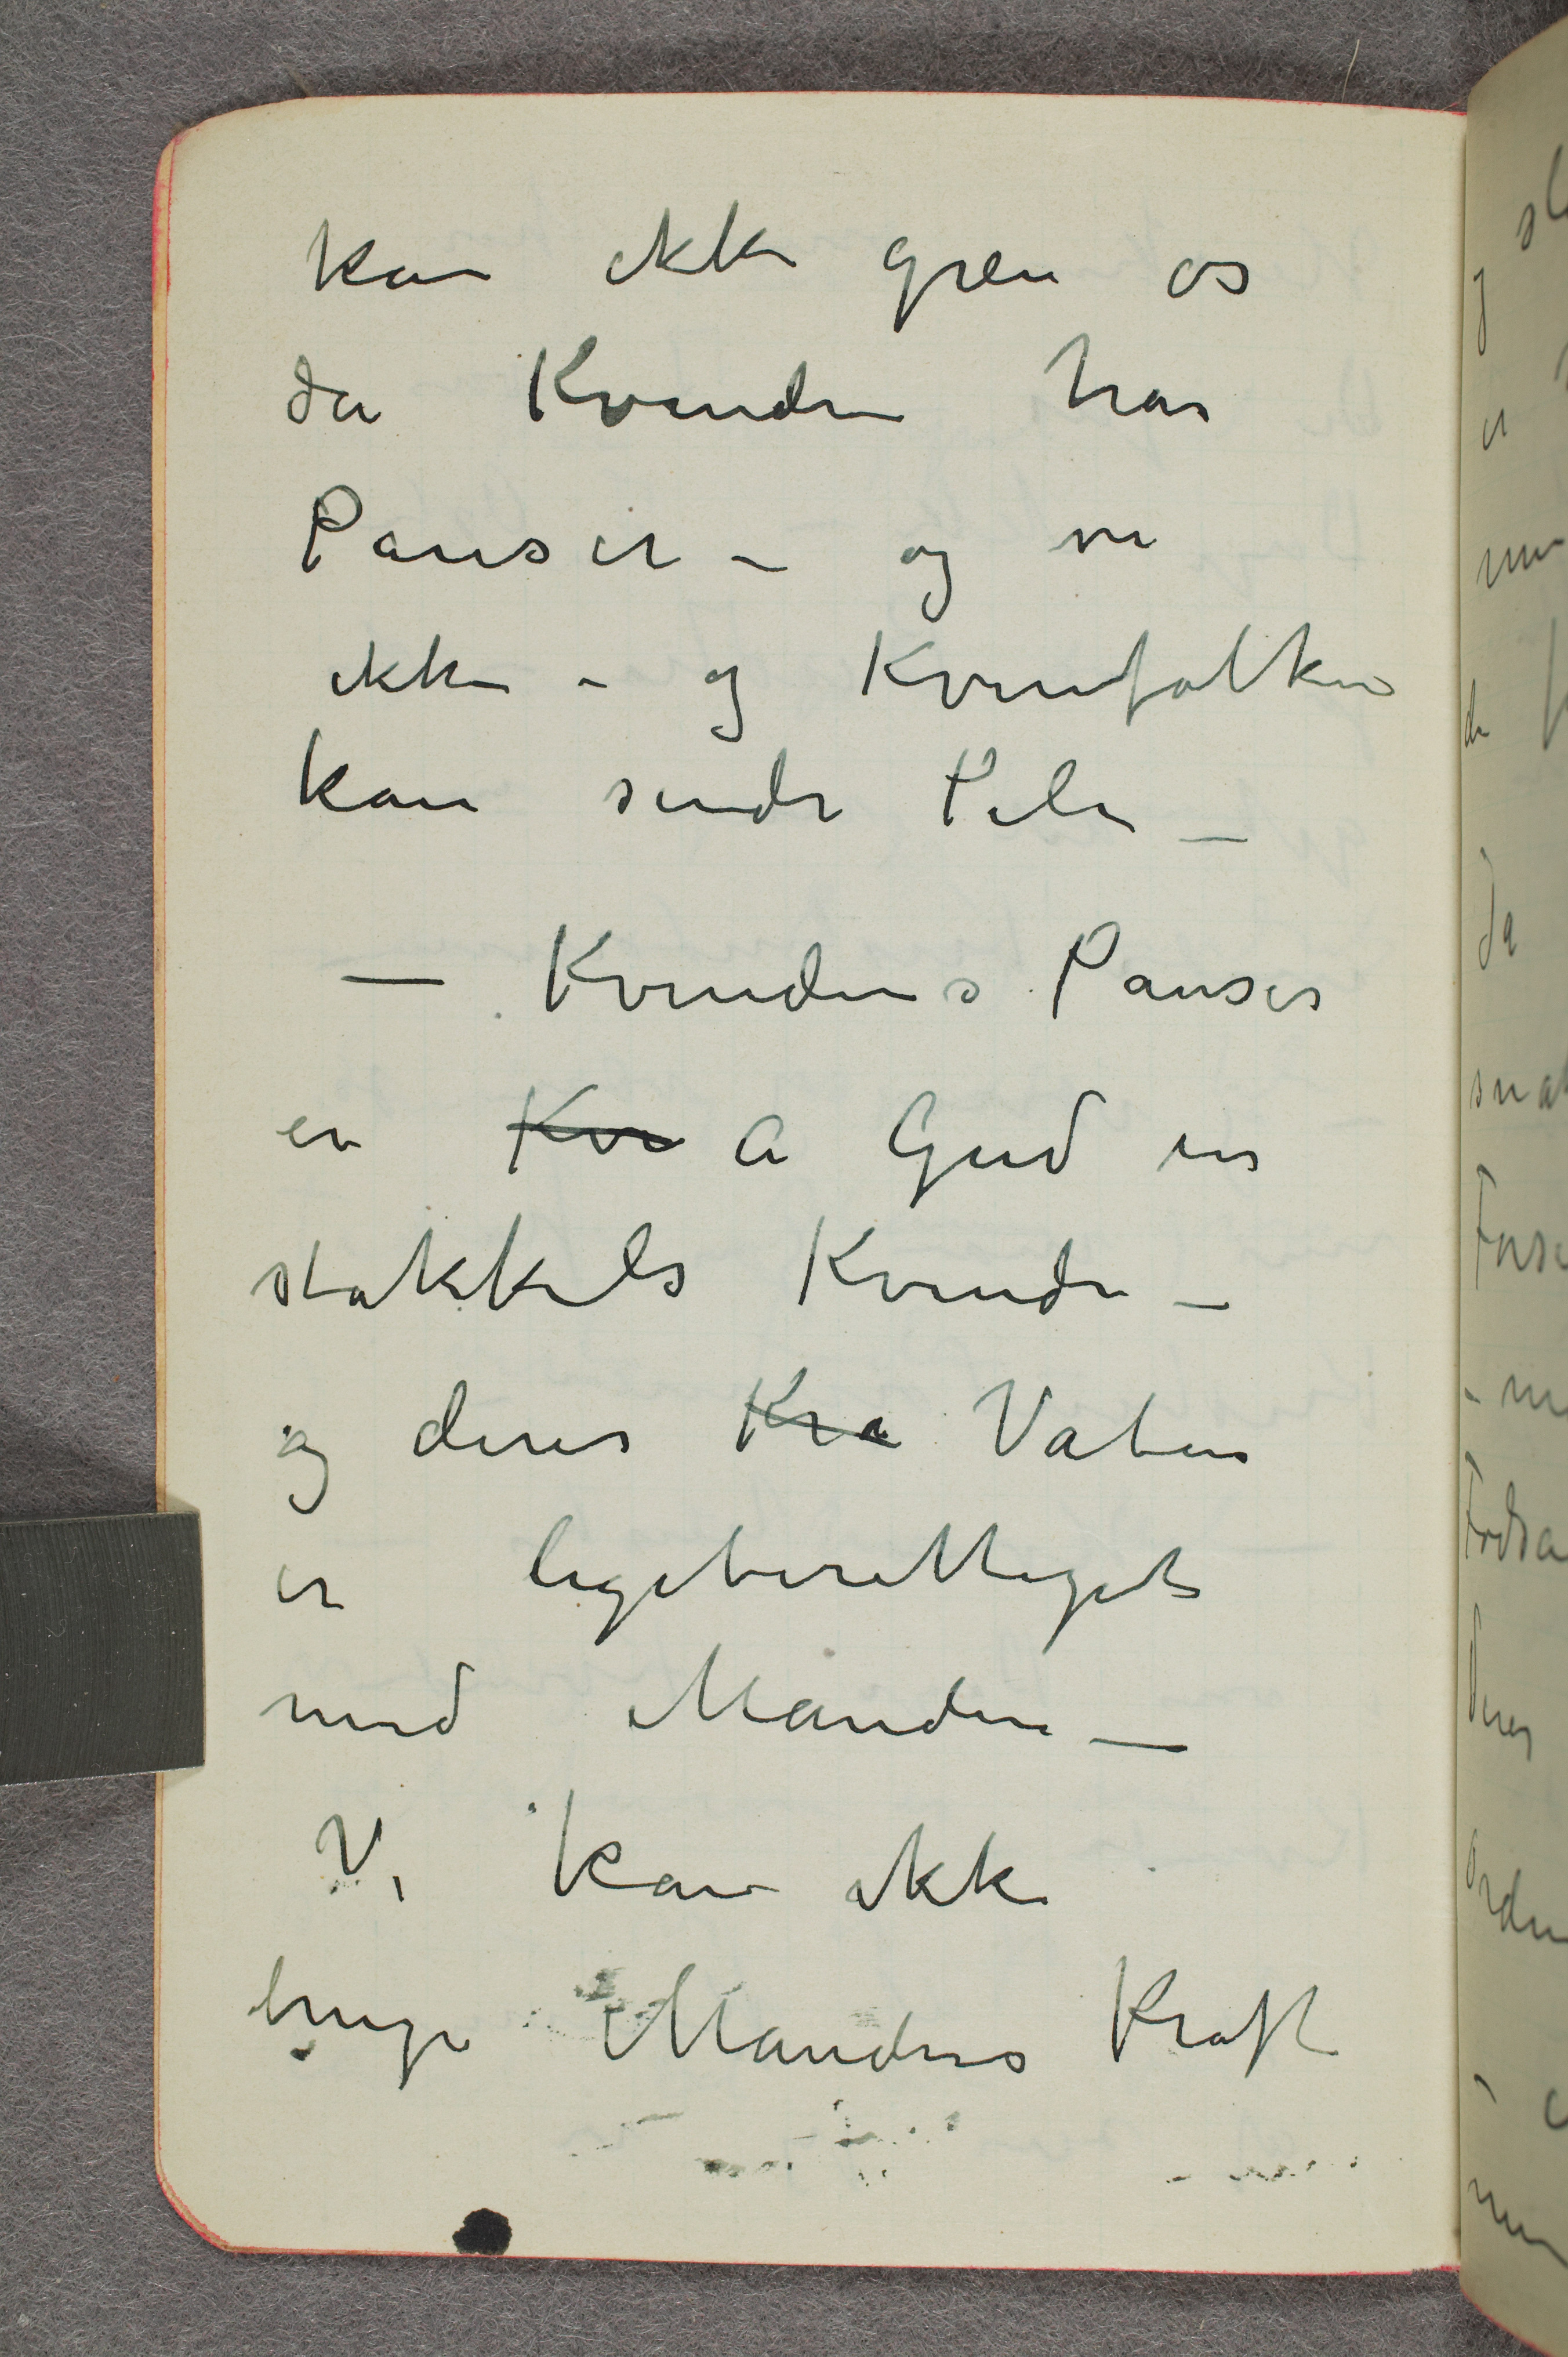 kan ikke greie os
da Kvinden har
Panser – og vi
ikke – og Kvinfolkene
kan sende Pile –
– Kvindens Panser
er Kvi A Gud en
stakkels Kvinde –
og deres Kra Vaben
er ligeberettiget
med Manden –
Vi kan ikke
bruge Mandens Kraft